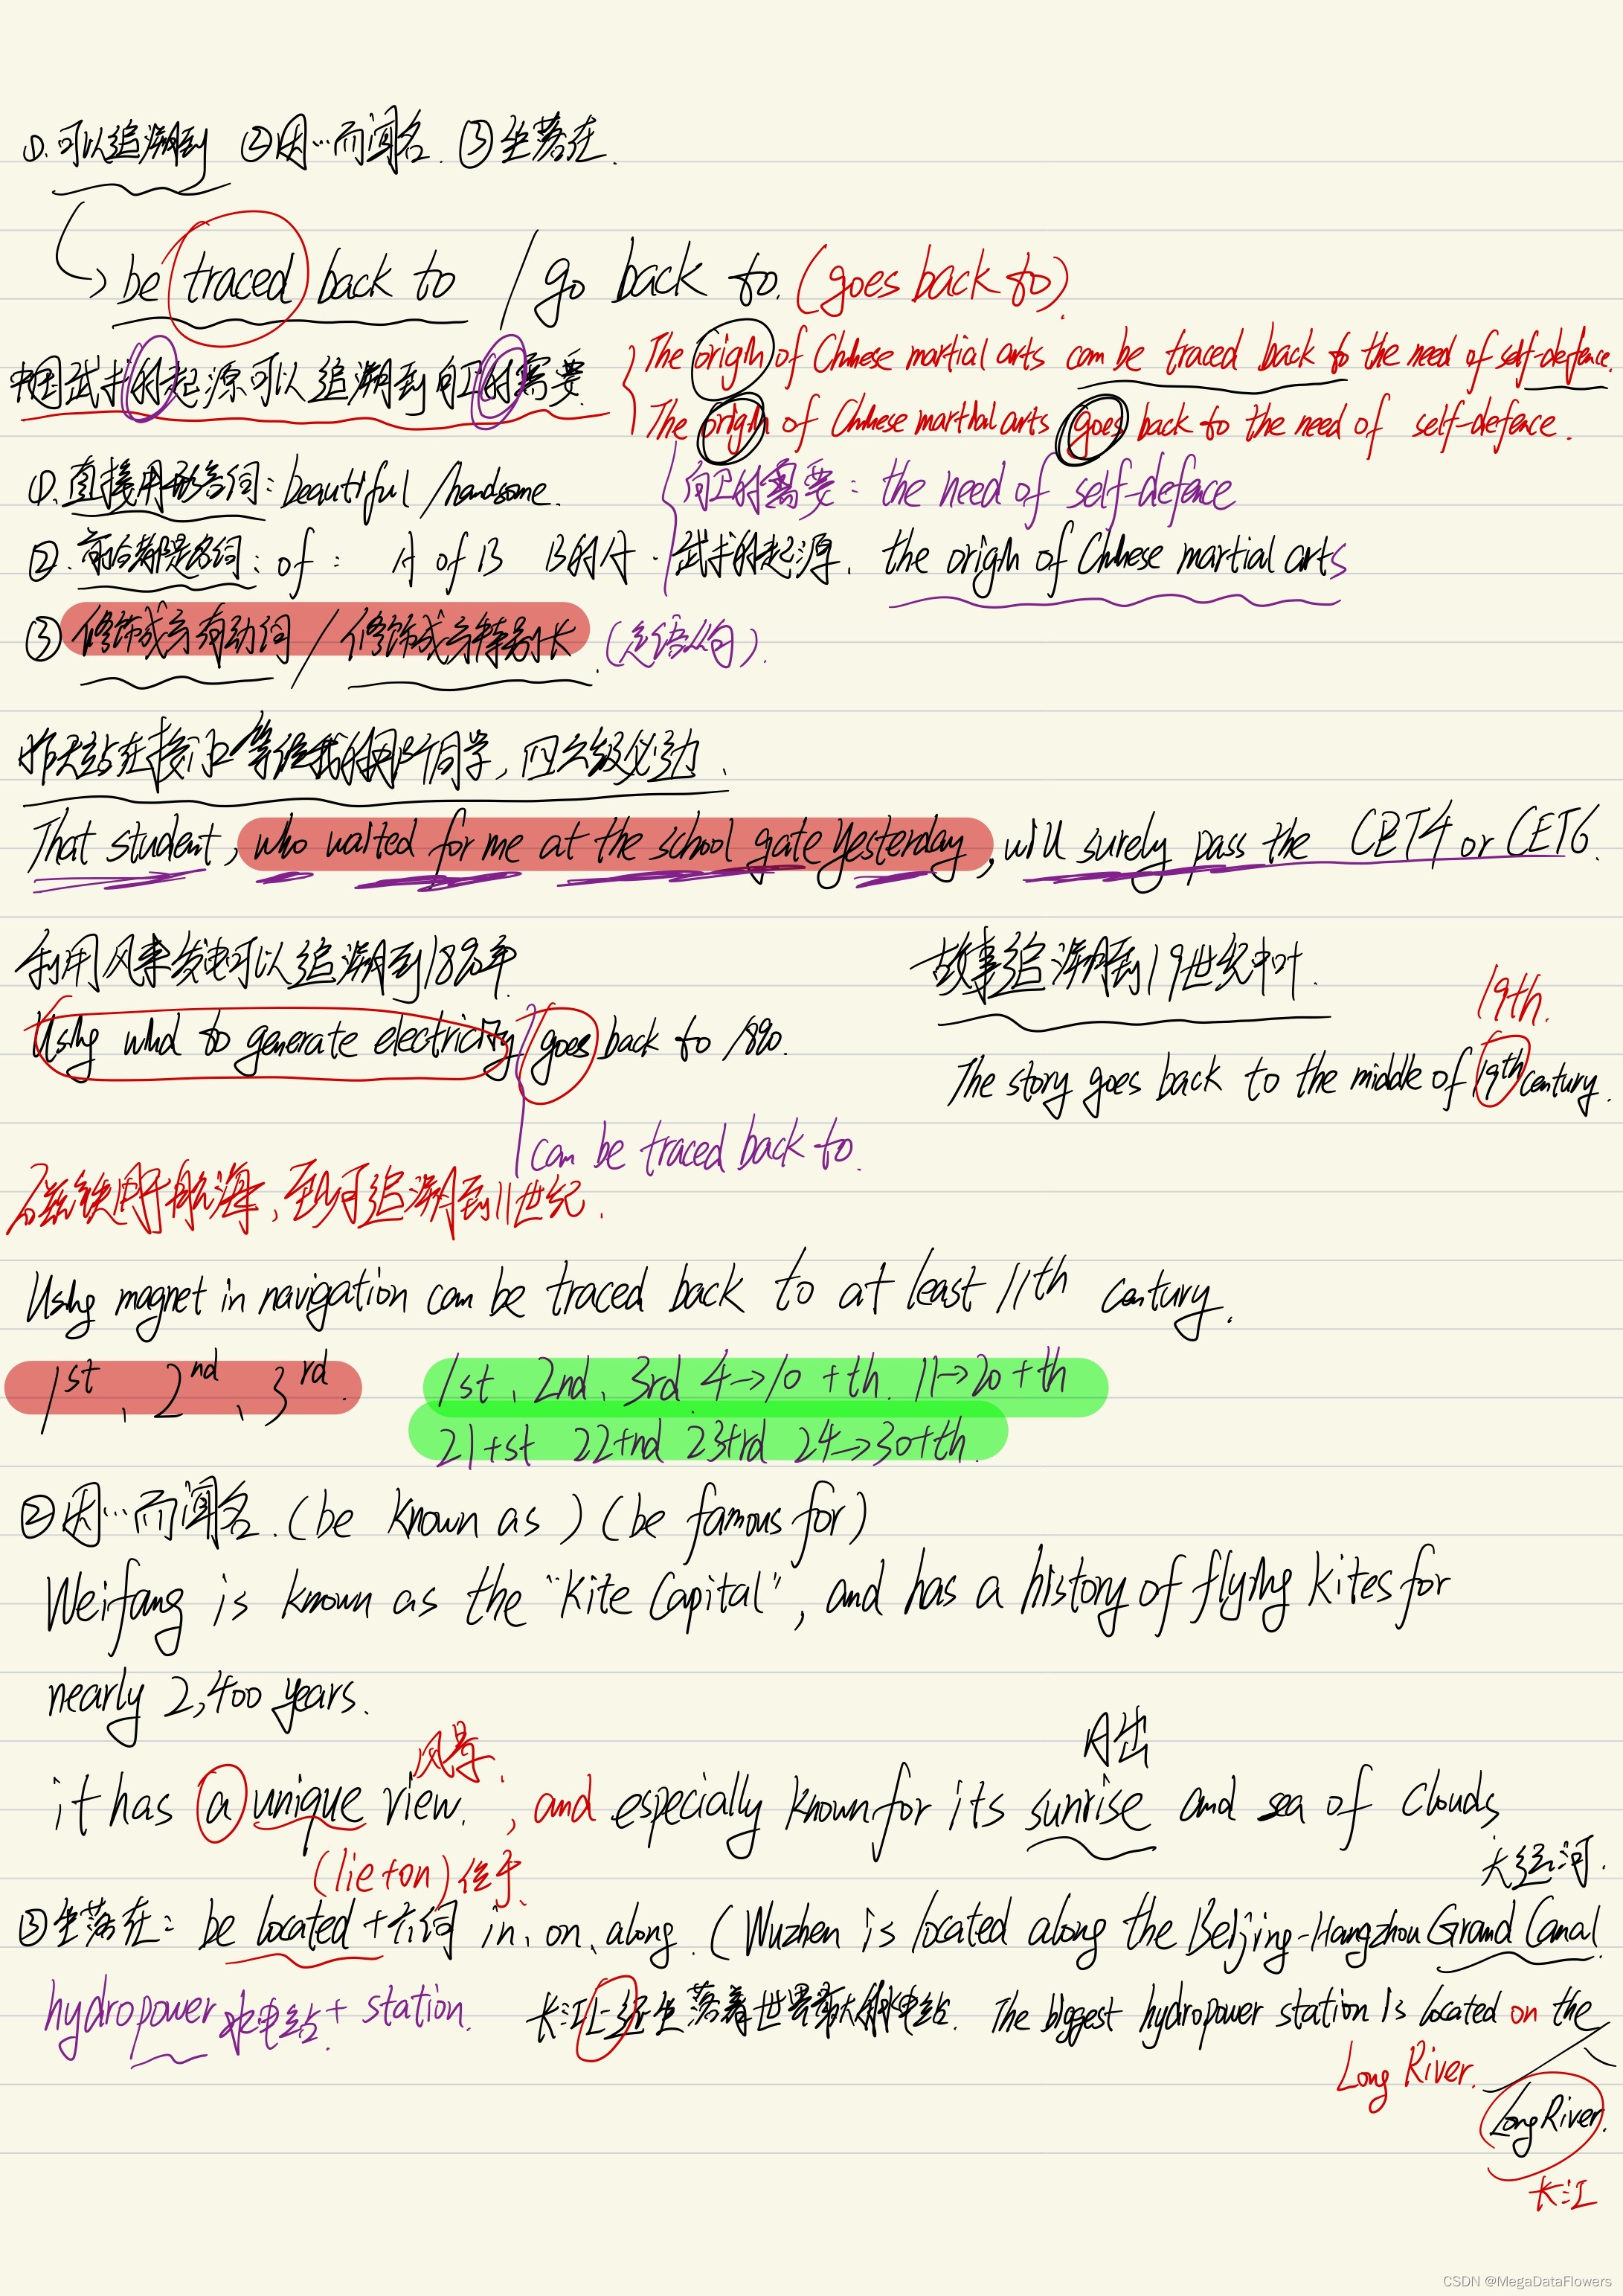 ①.可以追溯到 ②因…而闻名. ③坐落在.
be traced back to / go back to. (goes back to)
中国武术的起源可以追溯到自卫的需要.
The origin of Chinese martial arts can be traced back to the need of self-defence.
The origin of Chinese marthal arts goes back to the need of self-defence.
①.直接用形容词: beautiful / handsome.
自卫的需要: the need of self-defence
②.前后都是名词: of : A of B B的A. 武术的起源. the origin of Chinese martial arts
③修饰成分有动词 / 修饰成分特别长. (定语从句).
昨天站在校门口等待我的那个同学, 四六级必过.
That student, who waited for me at the school gate yesterday, will surely pass the CET4 or CET6.
利用风来发电可以追溯到1890年.
Using wind to generate electricity goes back to 1890.
can be traced back to.
故事追溯到19世纪中叶.
19th.
The story goes back to the middle of 19th century.
磁铁用于航海, 至少可追溯到11世纪.
Using magnet in navigation can be traced back to at least 11th century.
1st、2nd、3rd.
1st、2nd、3rd. 4→10 +th. 11→20+th
21+st 22+nd 23+rd 24→30+th.
②因…而闻名. (be known as) (be famous for)
Weifang is known as the "Kite Capital", and has a history of flying kites for
nearly 2,400 years.
风景. 日出
it has a unique view. , and especially known for its sunrise and sea of clouds
(lie+on) 位于. 大运河.
③坐落在: be located +介词 in、on、along. (Wuzhen is located along the Beijing-Hangzhou Grand Canal.
hydropower 水电站+ station. 长江上 坐落着世界最大的水电站. The biggest hydropower station is located on the
Long River.
Long River.
长江
CSDN @MegaDataFlowers